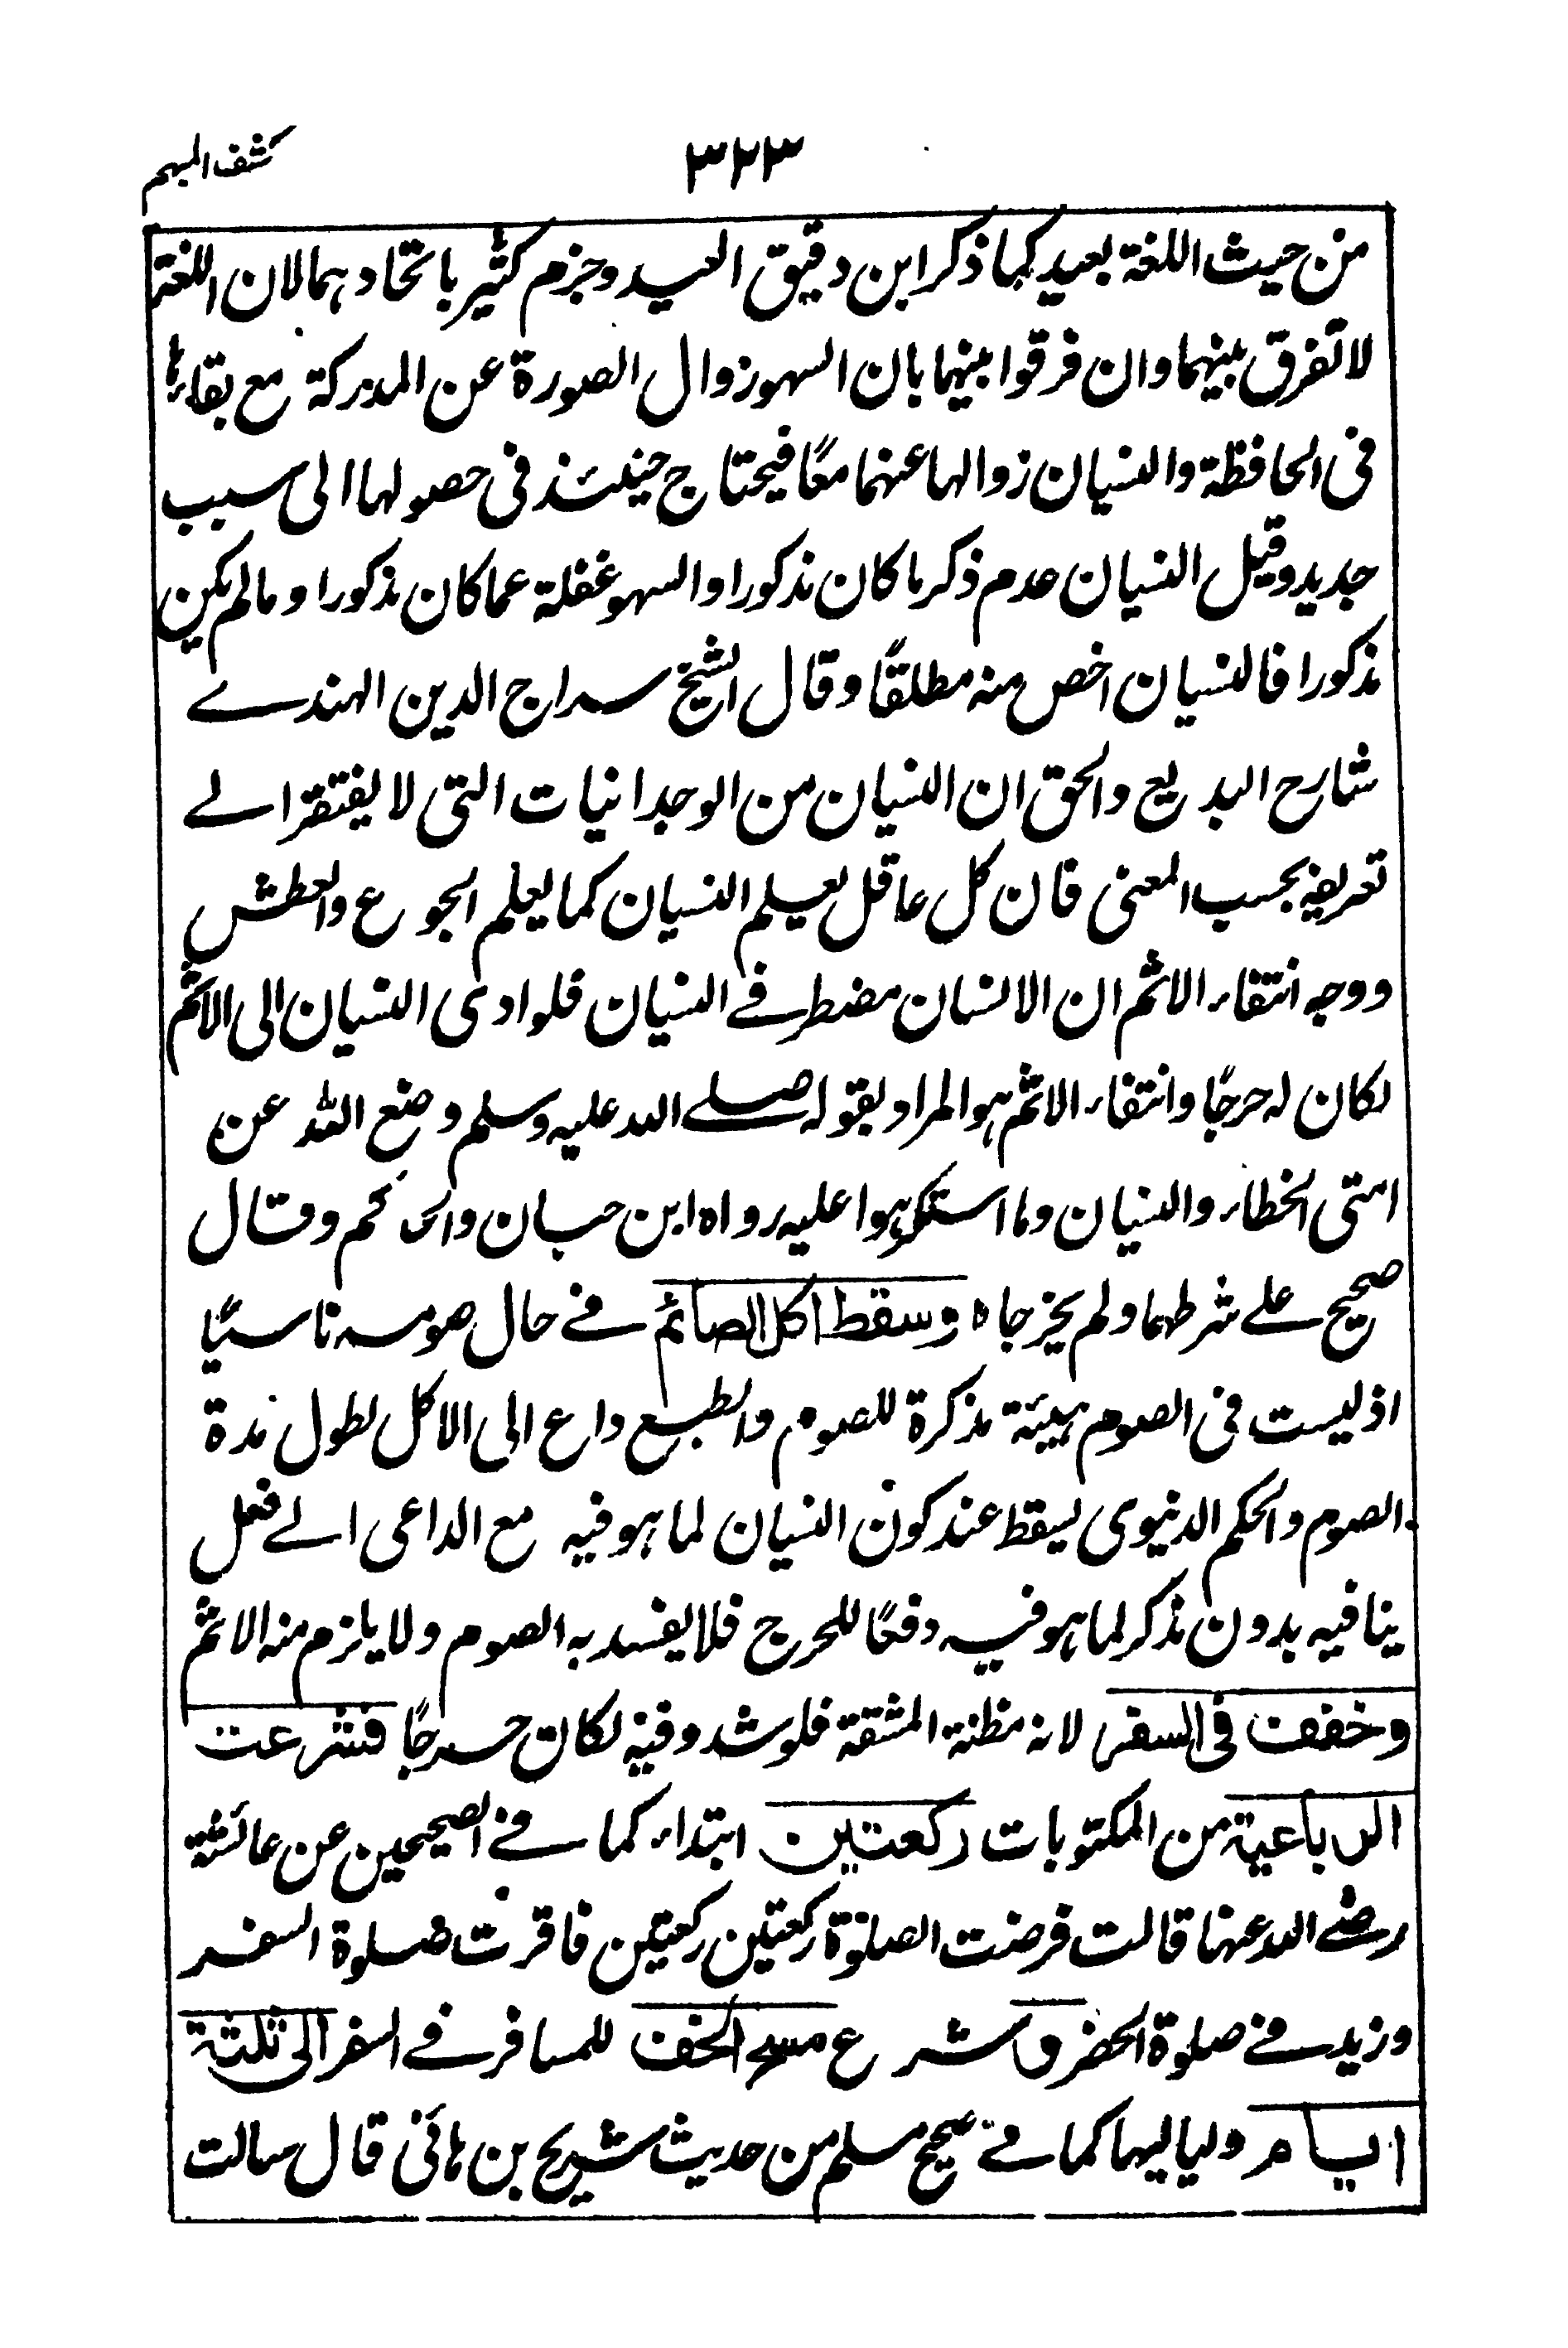 كشف المبهم
٣٢٣
من حيث اللغة بعيد كما ذكر ابن دقيق العيد وجزم كثير باتحادهما لان اللغة
لا تفرق بينهما وان فرقوا بينهما بان السهو زوال الصورة عن المدركة مع بقاءها
فى الحافظة والنسيان زوالها عنهما معًا فيحتاج حينئذ فى حصولها الى سبب
جديد وقيل النسيان عدم ذكر ما كان مذكورا والسهو غفلة عما كان مذكورا ومالم يكن
مذكورا فالنسيان اخص منه مطلقًا وقال الشيخ سراج الدين الهندے
شارح البديع والحق ان النسيان من الوجدانيات التى لا يفتقر الے
تعريفه بحسب المعنى فان كل عاقل يعلم النسيان كما يعلم الجوع والعطش
ووجه انتفاء الاثم ان الانسان مضطر فے النسيان فلو ادى النسيان الى الاثم
لكان له حرجًا وانتفاء الاثم هو المراد بقوله صلے الله عليه وسلم وضع الله عن
امتى الخطاء والنسيان وما استكرهوا عليه رواه ابن حبان والحاكم وقال
صحيح علے شرطهما ولم يخرجاه وسقط اكل الصائم فے حال صومه ناسيًا
اذ ليست فى الصوم هيئة مذكرة للصوم والطبع داع الى الاكل لطول مدة
الصوم والحكم الدنيوى يسقط عند كون النسيان لما هو فيه مع الداعى الے فعل
ينافيه بدون مذكر لما هو فيه دفعًا للحرج فلا يفسد به الصوم ولا يلزم منه الاثم
وخففت فى السفر لانه مظنة المشقة فلو شدد فيه لكان حرجًا فشرعت
الرباعية من المكتوبات ركعتين ابتداء كما فے الصحيحين عن عائشة
رضے الله عنها قالت فرضت الصلوة ركعتين ركعتين فاقرت صلوة السفر
وزيد فے صلوة الحضر وشرع مسح الخف للمسافر فے السفر الى ثلثة
ايام ولياليها كما فے صحيح مسلم من حديث شريح بن هانئ قال سالت